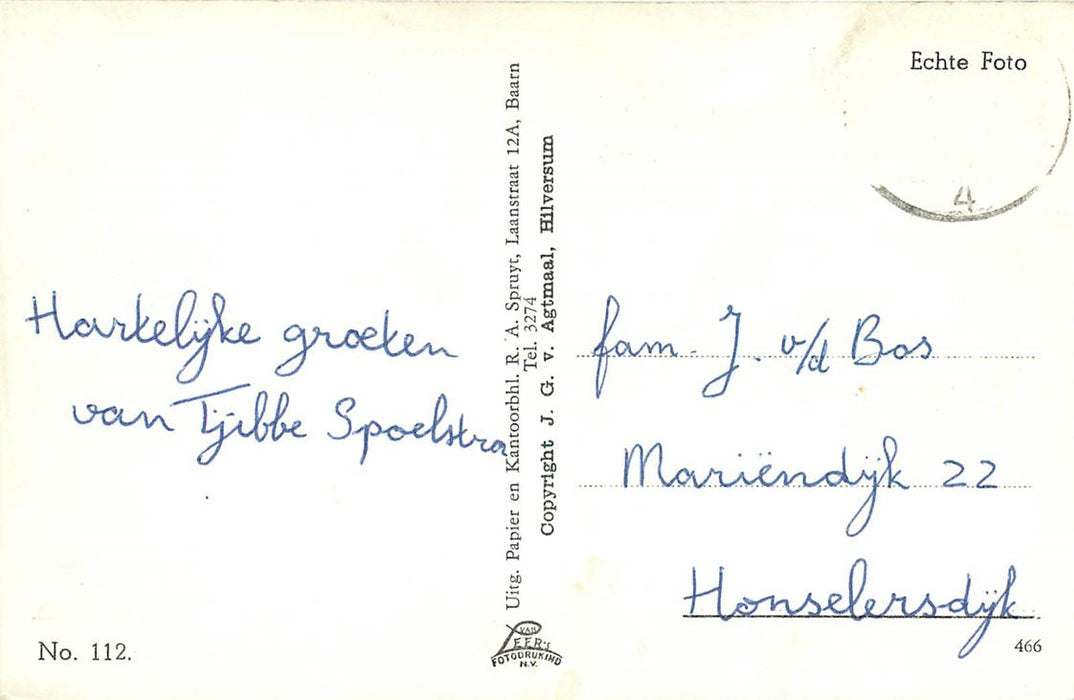 Echte Foto
4
Hartelijke groeten
van Tjibbe Spoelstra
Uitg. Papier en Kantoorbhl. R. A. Spruyt, Laanstraat 12A, Baarn
Tel. 3274
Copyright J. G. v. Agtmaal, Hilversum
fam. J. v/d Bos
Mariëndijk 22
Honselersdijk
No. 112.
VAN
LEER's
FOTODRUKIND
N.V.
466